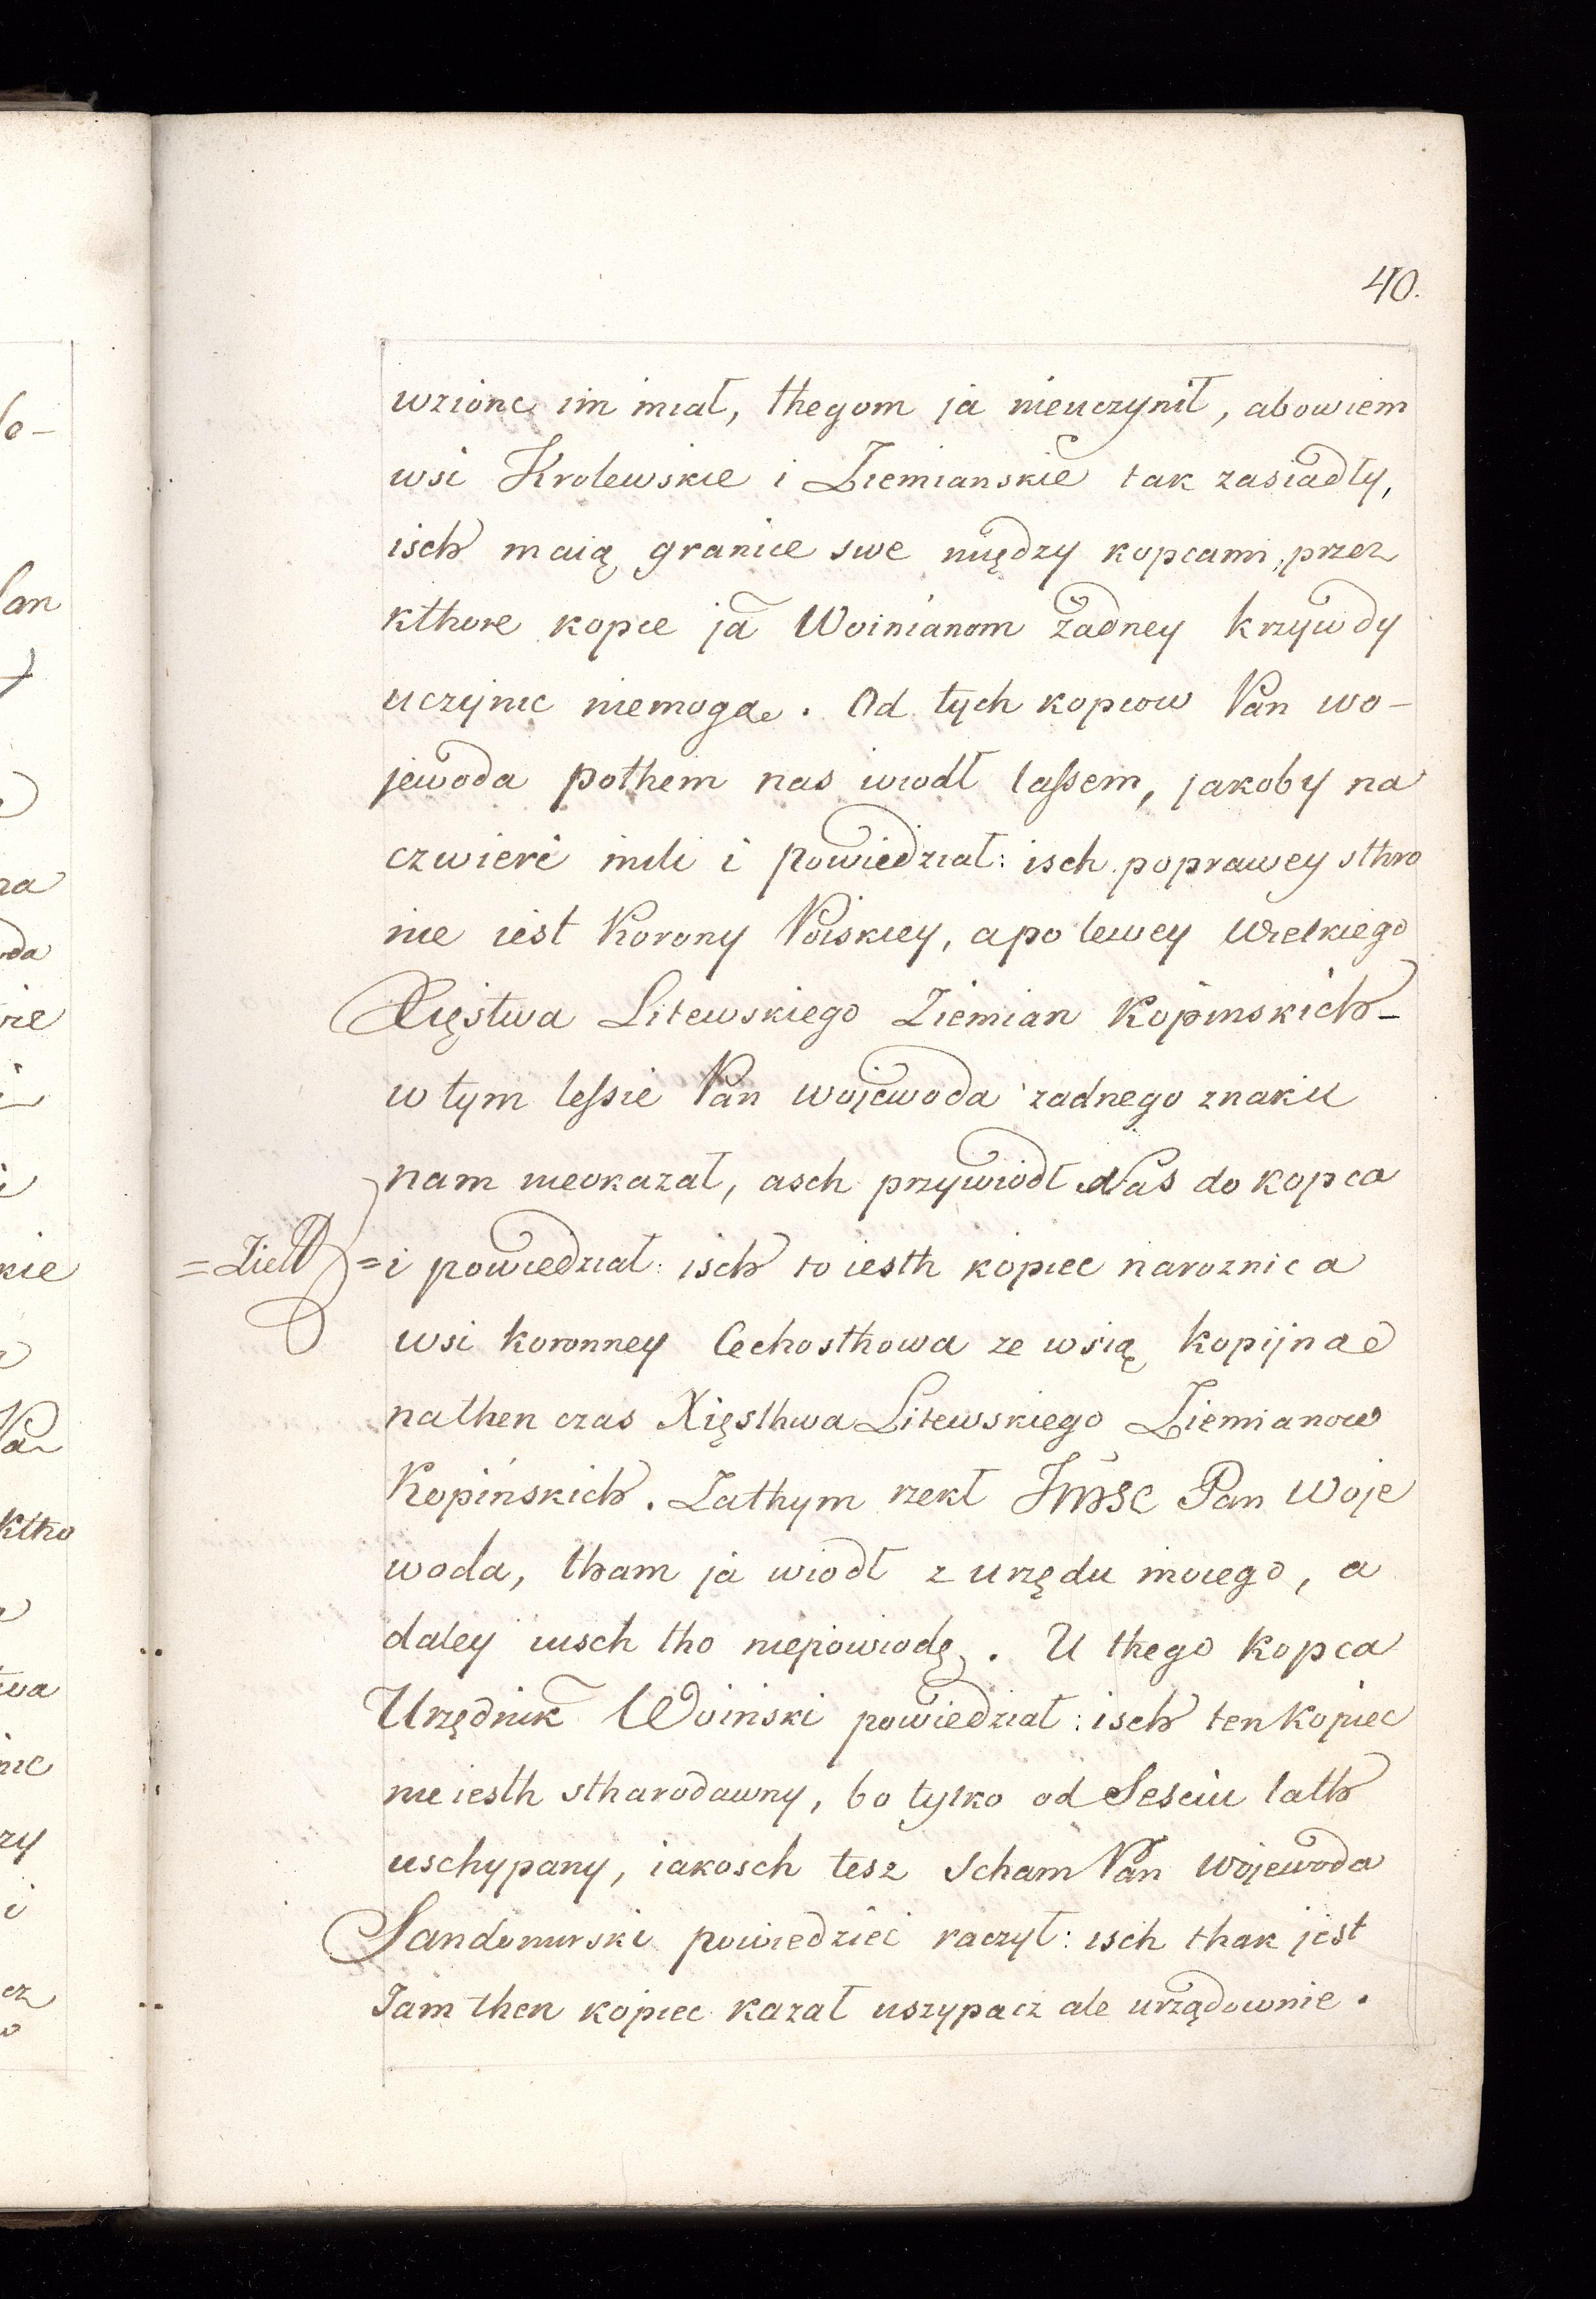 40.
wzionc im miał, thegom ja nieuczynił, abowiem
wsi Krolewskie i Ziemianskie tak zasiadły,
isch maią granice swe między kopcami, przez
kthore kopce ja Woinianom żadney krzywdy
uczynic niemogae. Od tych kopcow Pan wo-
jewoda pothem nas wiodł lassem, jakoby na
czwierć mili i powiedział: isch poprawey sthro
nie iest Korony Polskiey, apo lewey Wielkiego
Xięstwa Litewskiego Ziemian Kopinskich-
w tym lessie Pan wojewoda zadnego znaku
nam nieokazał, asch przywiodł Nas do kopca
=i powiedział: isch to iesth kopiec naroznica
wsi koronney Cechosthowa ze wsią kopijnae
nathen czas Xięsthwa Litewskiego Ziemianow
Kopińskich. Zathym rzekł Jmść Pan Woje
woda, tham ja wiodł z urzędu moiego, a
daley iusch tho niepowiodę. U thego kopca
Urzędnik Woinski powiedział: isch ten kopiec
nie iesth stharodawny, bo tylko od Sesciu lath
uschypany, iakosch tesz scham Pan Wojewoda
Sandomirski powiedzieć raczył: isch thak jest
Jam then kopiec kazał uszypacz ale urządownie.